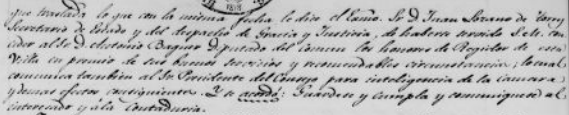 que traslada lo que con la misma fecha le dice el Exmo. Sr. D. Juan Lozano de Torres
Secretario de Estado y del despacho de Gracia y Justicia, de haberse servido S.M. con-
ceder al Sr. D. Antonio Baquer diputado del Comun los honores de Regidor de esta
Villa en premio de sus buenos servicios y recomendables circunstancias; lo cual
comunica tambien al Sr. Presidente del Consejo para inteligencia de la Camara
y demas efectos consiguientes. Y se acordó: Guardese y cumpla y comuniquese al
interesado y á la Contaduria.